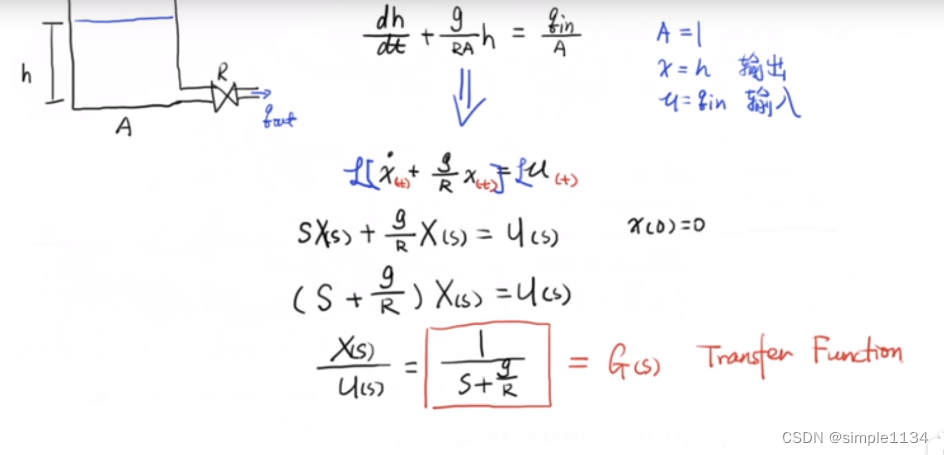 dh/dt + g/RA h = qin/A
A = 1
x = h 输出
u = qin 输入
h
R
qout
A
ℒ[ẋ(t) + g/R x(t)] = ℒu(t)
SX(s) + g/R X(s) = U(s) x(0)=0
(S + g/R) X(s) = U(s)
X(s)/U(s) = 1/(S + g/R) = G(s) Transfer Function
CSDN @simple1134